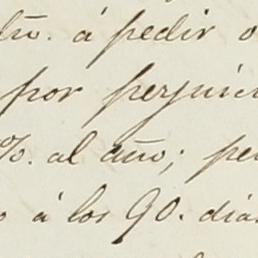 á pedir
por perjuic
%. al año; pe
o á los 90. dias